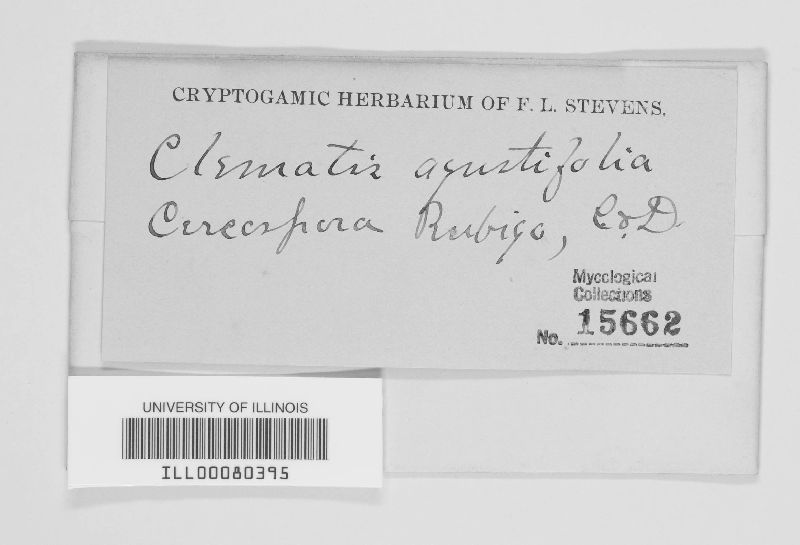 CRYPTOGAMIC HERBARIUM OF F. L. STEVENS.
Clematis agustifolia
Cercospora Rubigo, C & D
Mycological
Collections
No. 15662
UNIVERSITY OF ILLINOIS
ILL00080395